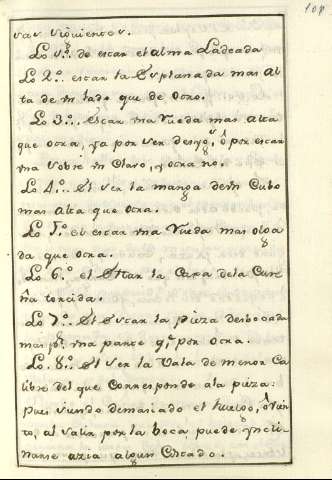 108
sas siguientes.
Lo 1º. de estar el alma Ladeada
Lo 2º. estar la Esplanada mas al
ta de un lado que de Otro.
Lo 3º.. Estar una rueda mas alta
que otra, ya por ser desigs. ô por estar
una sobre un Clavo, y otra no.
Lo 4º. El ser la manga de un Cubo
mas alta que otra.
Lo 5º. el estar una rueda mas
da que otra.
Lo 6º. el Estar la Cara de la Cure
ña torcida.
Lo 7º. El Estar la pieza desbocada
mas pr. una parte qe. por otra.
Lo. 8º. El ser la Vala de menor Ca
libre del que Corresponde a la pieza:
pues siendo demaciado el hueldo, ô vien
to, al salir por la boca, puede yncli
narse azia algun Costado.